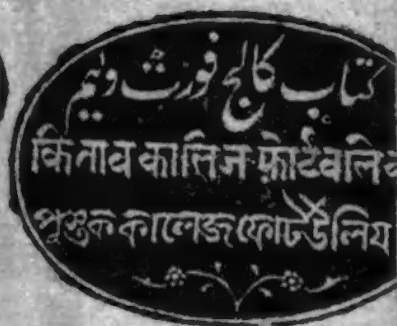 کتاب کالج فورث ولیم
किताव कालिज फ़ोर्टवलि
পুস্তক কালেজ ফোর্ট উলিয